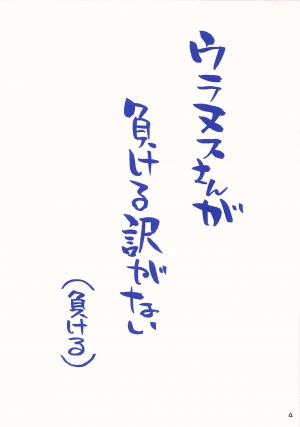 ウラヌスさんが
負ける訳がない
(負ける)
4